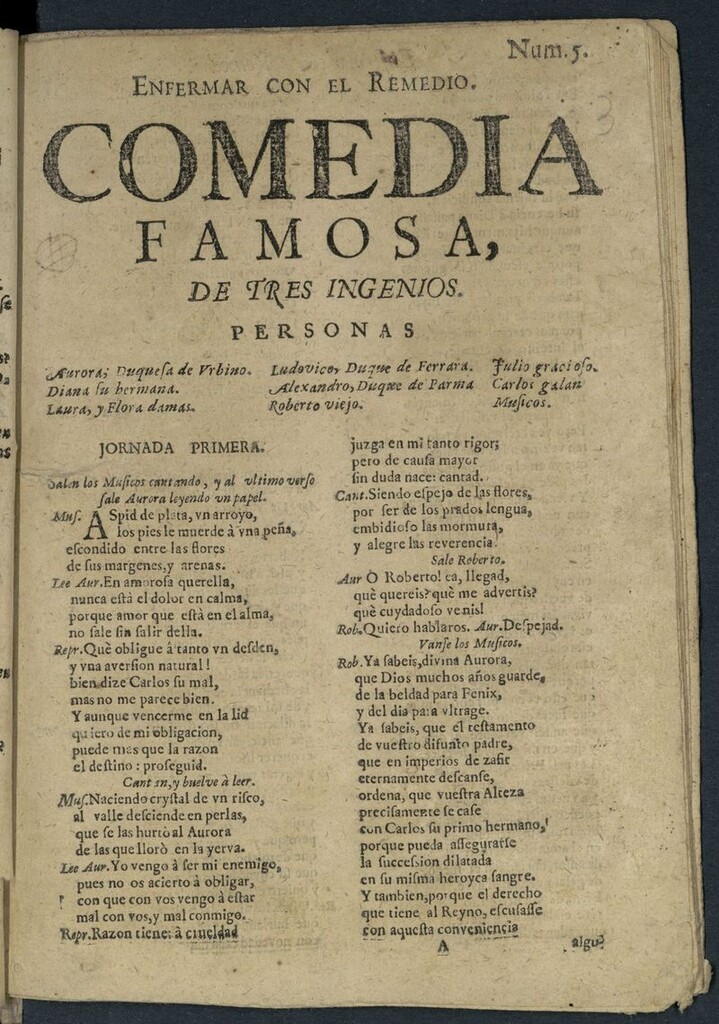 Num. 5.
ENFERMAR CON EL REMEDIO.
COMEDIA
FAMOSA,
DE TRES INGENIOS.
PERSONAS
Aurora, Duquesa de Vrbino.
Diana su hermana.
Laura, y Flora damas.
Ludovico, Duque de Ferrara.
Alexandro, Duque de Parma
Roberto viejo.
Julio gracioso.
Carlos galan
Musicos.
JORNADA PRIMERA.
Salen los Musicos cantando, y al vltimo verso
sale Aurora leyendo vn papel.
Mus. ASpid de plata, vn arroyo,
los pies le muerde à vna peña,
escondido entre las flores
de sus margenes, y arenas.
Lee Aur. En amorosa querella,
nunca està el dolor en calma,
porque amor que està en el alma,
no sale sin salir della.
Repr. Què obligue à tanto vn desden,
y vna aversion natural!
bien dize Carlos su mal,
mas no me parece bien.
Y aunque vencerme en la lid
quiero de mi obligacion,
puede mas que la razon
el destino: proseguid.
Cantan, y buelve à leer.
Mus. Naciendo crystal de vn risco,
al valle desciende en perlas,
que se las hurtò al Aurora
de las que llorò en la yerva.
Lee Aur. Yo vengo à ser mi enemigo,
pues no os acierto à obligar,
y con que con vos vengo à estar
mal con vos, y mal conmigo.
Repr. Razon tiene: à crueldad
juzga en mi tanto rigor;
pero de causa mayor
sin duda nace: cantad.
Cant. Siendo espejo de las flores,
por ser de los prados lengua,
embidioso las mormura,
y alegre las reverencia.
Sale Roberto.
Aur O Roberto! ea, llegad,
què quereis? què me advertis?
què cuydadoso venis!
Rob. Quiero hablaros. Aur. Despejad.
Vanse los Musicos.
Rob. Ya sabeis, divina Aurora,
que Dios muchos años guarde,
de la beldad para Fenix,
y del dia para vltrage.
Ya sabeis, que el testamento
de vuestro difunto padre,
que en imperios de zafir
eternamente descanse,
ordena, que vuestra Alteza
precisamente se case
con Carlos su primo hermano,
porque pueda assegurarse
la succession dilatada
en su misma heroyca sangre.
Y tambien, porque el derecho
que tiene al Reyno, escusasse
con aquesta conveniencia
A
algu-